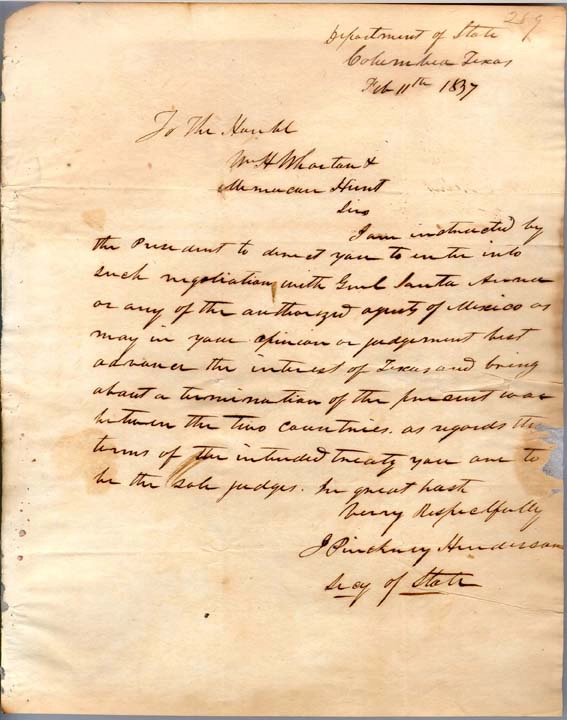 289
Department of State
Columbia Texas
Feb 11th 1837
To The Honbl
Wm H Wharton &
Memucan Hunt
Sirs
I am instructed by
the President to direct you to enter into
such negotiation with Genl Santa Anna
or any of the authorized agents of Mexico as
may in your opinion or judgement best
advance the interest of Texas and bring
about a termination of the present war
between the two countries. as regards the
terms of the intended treaty you are to
be the sole judges. In great hast
Verry Respectfully
J Pinckney Henderson
Secy of State